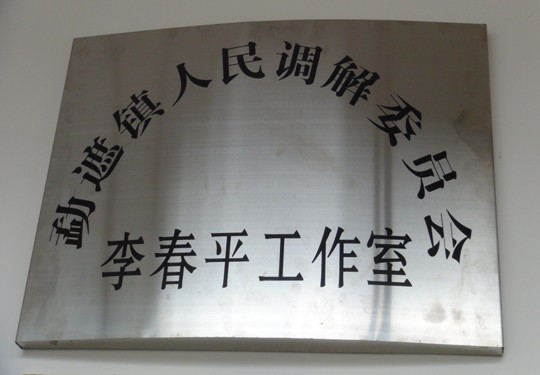 勐遮镇人民调解委员会
李春平工作室